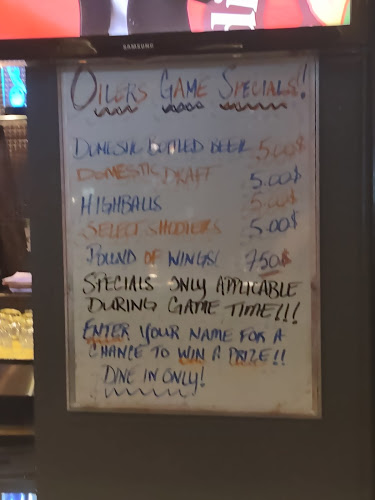 SAMSUNG
OILERS GAME SPECIALS!!
DOMESTIC BOTTLED BEER 5.00$
DOMESTIC DRAFT 5.00$
HIGHBALLS 5.00$
SELECT SHOOTERS 5.00$
POUND OF WINGS! 750$
SPECIALS ONLY APPLICABLE
DURING GAME TIME!!!
ENTER YOUR NAME FOR A
CHANCE TO WIN A PRIZE!!
DINE IN ONLY!